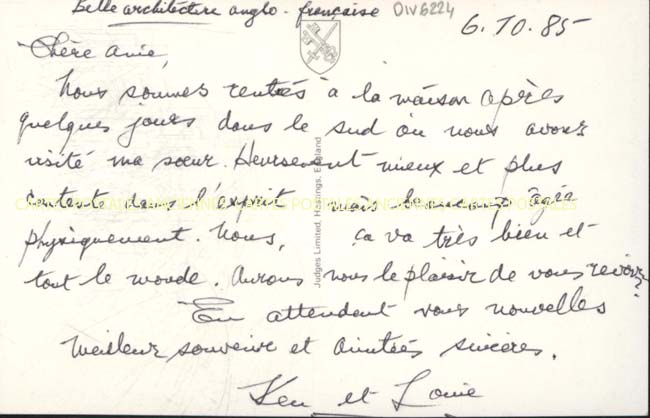 Belle architecture anglo-française DIV6224
6.10.85
Chère amie,
Nous sommes rentrés à la maison après
quelques jours dans le sud où nous avons
visité ma sœur. Heursement mieux et plus
contente dans l'esprit mais beaucoup âgée
physiquement. Nous, ça va très bien et
tout le monde. Aurons nous le plaisir de vous revoir?
En attendent vous nouvelles
Meilleur souvenir et amitiés sincères.
Ken et Lorie
Judges Limited, Hastings, England